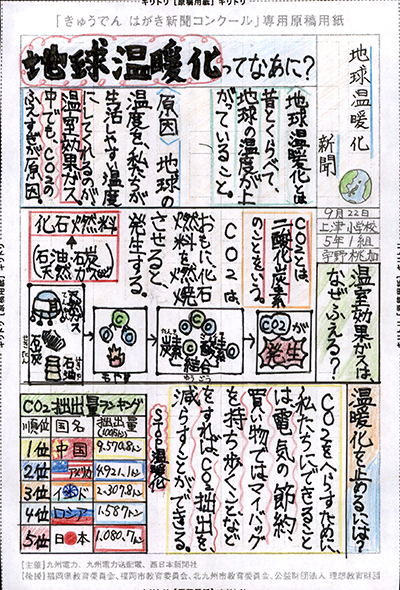 キリトリ【原稿用紙】キリトリ
「きゅうでん はがき新聞コンクール」専用原稿用紙
地球温暖化
新聞
9月22日
上津小学校
5年1組
宇野 桃加
地球温暖化ってなあに?
地球温暖化とは
昔とくらべて、
地球の温度が上
がっていること。
〈原因〉地球の
温度を、私たちが
生活しやすい温度
にしてくれるのが
温室効果ガス
中でも、CO2の
ふえすぎが原因。
温室効果ガスは、
なぜふえる?
CO2とは、
二酸化炭素
のことをいう。
CO2は、
おもに化石
燃料を燃焼
させると、
発生する。
化石燃料
(石油 石炭
天然ガスなど)
天然ガス
石炭
石油
もやす
C
O
炭素
酸素
結合
CO2が
発生
温暖化を止めるには?
CO2をへらすために、
私たちにできること
は、電気の節約、
買い物ではマイバッグ
を持ち歩くことなど
をすれば、CO2排出を、
減らすことができる。
STOP温暖化
CO2排出量ランキング
順位 国名 排出量
1位 中国 9570.8トン
2位 アメリカ 4921.1トン
3位 インド 2307.8トン
4位 ロシア 1587トン
5位 日本 1080.7トン
[主催]九州電力、九州電力送配電、西日本新聞社
[後援]福岡県教育委員会、福岡市教育委員会、北九州市教育委員会、公益財団法人 理想教育財団
キリトリ【原稿用紙】キリトリ